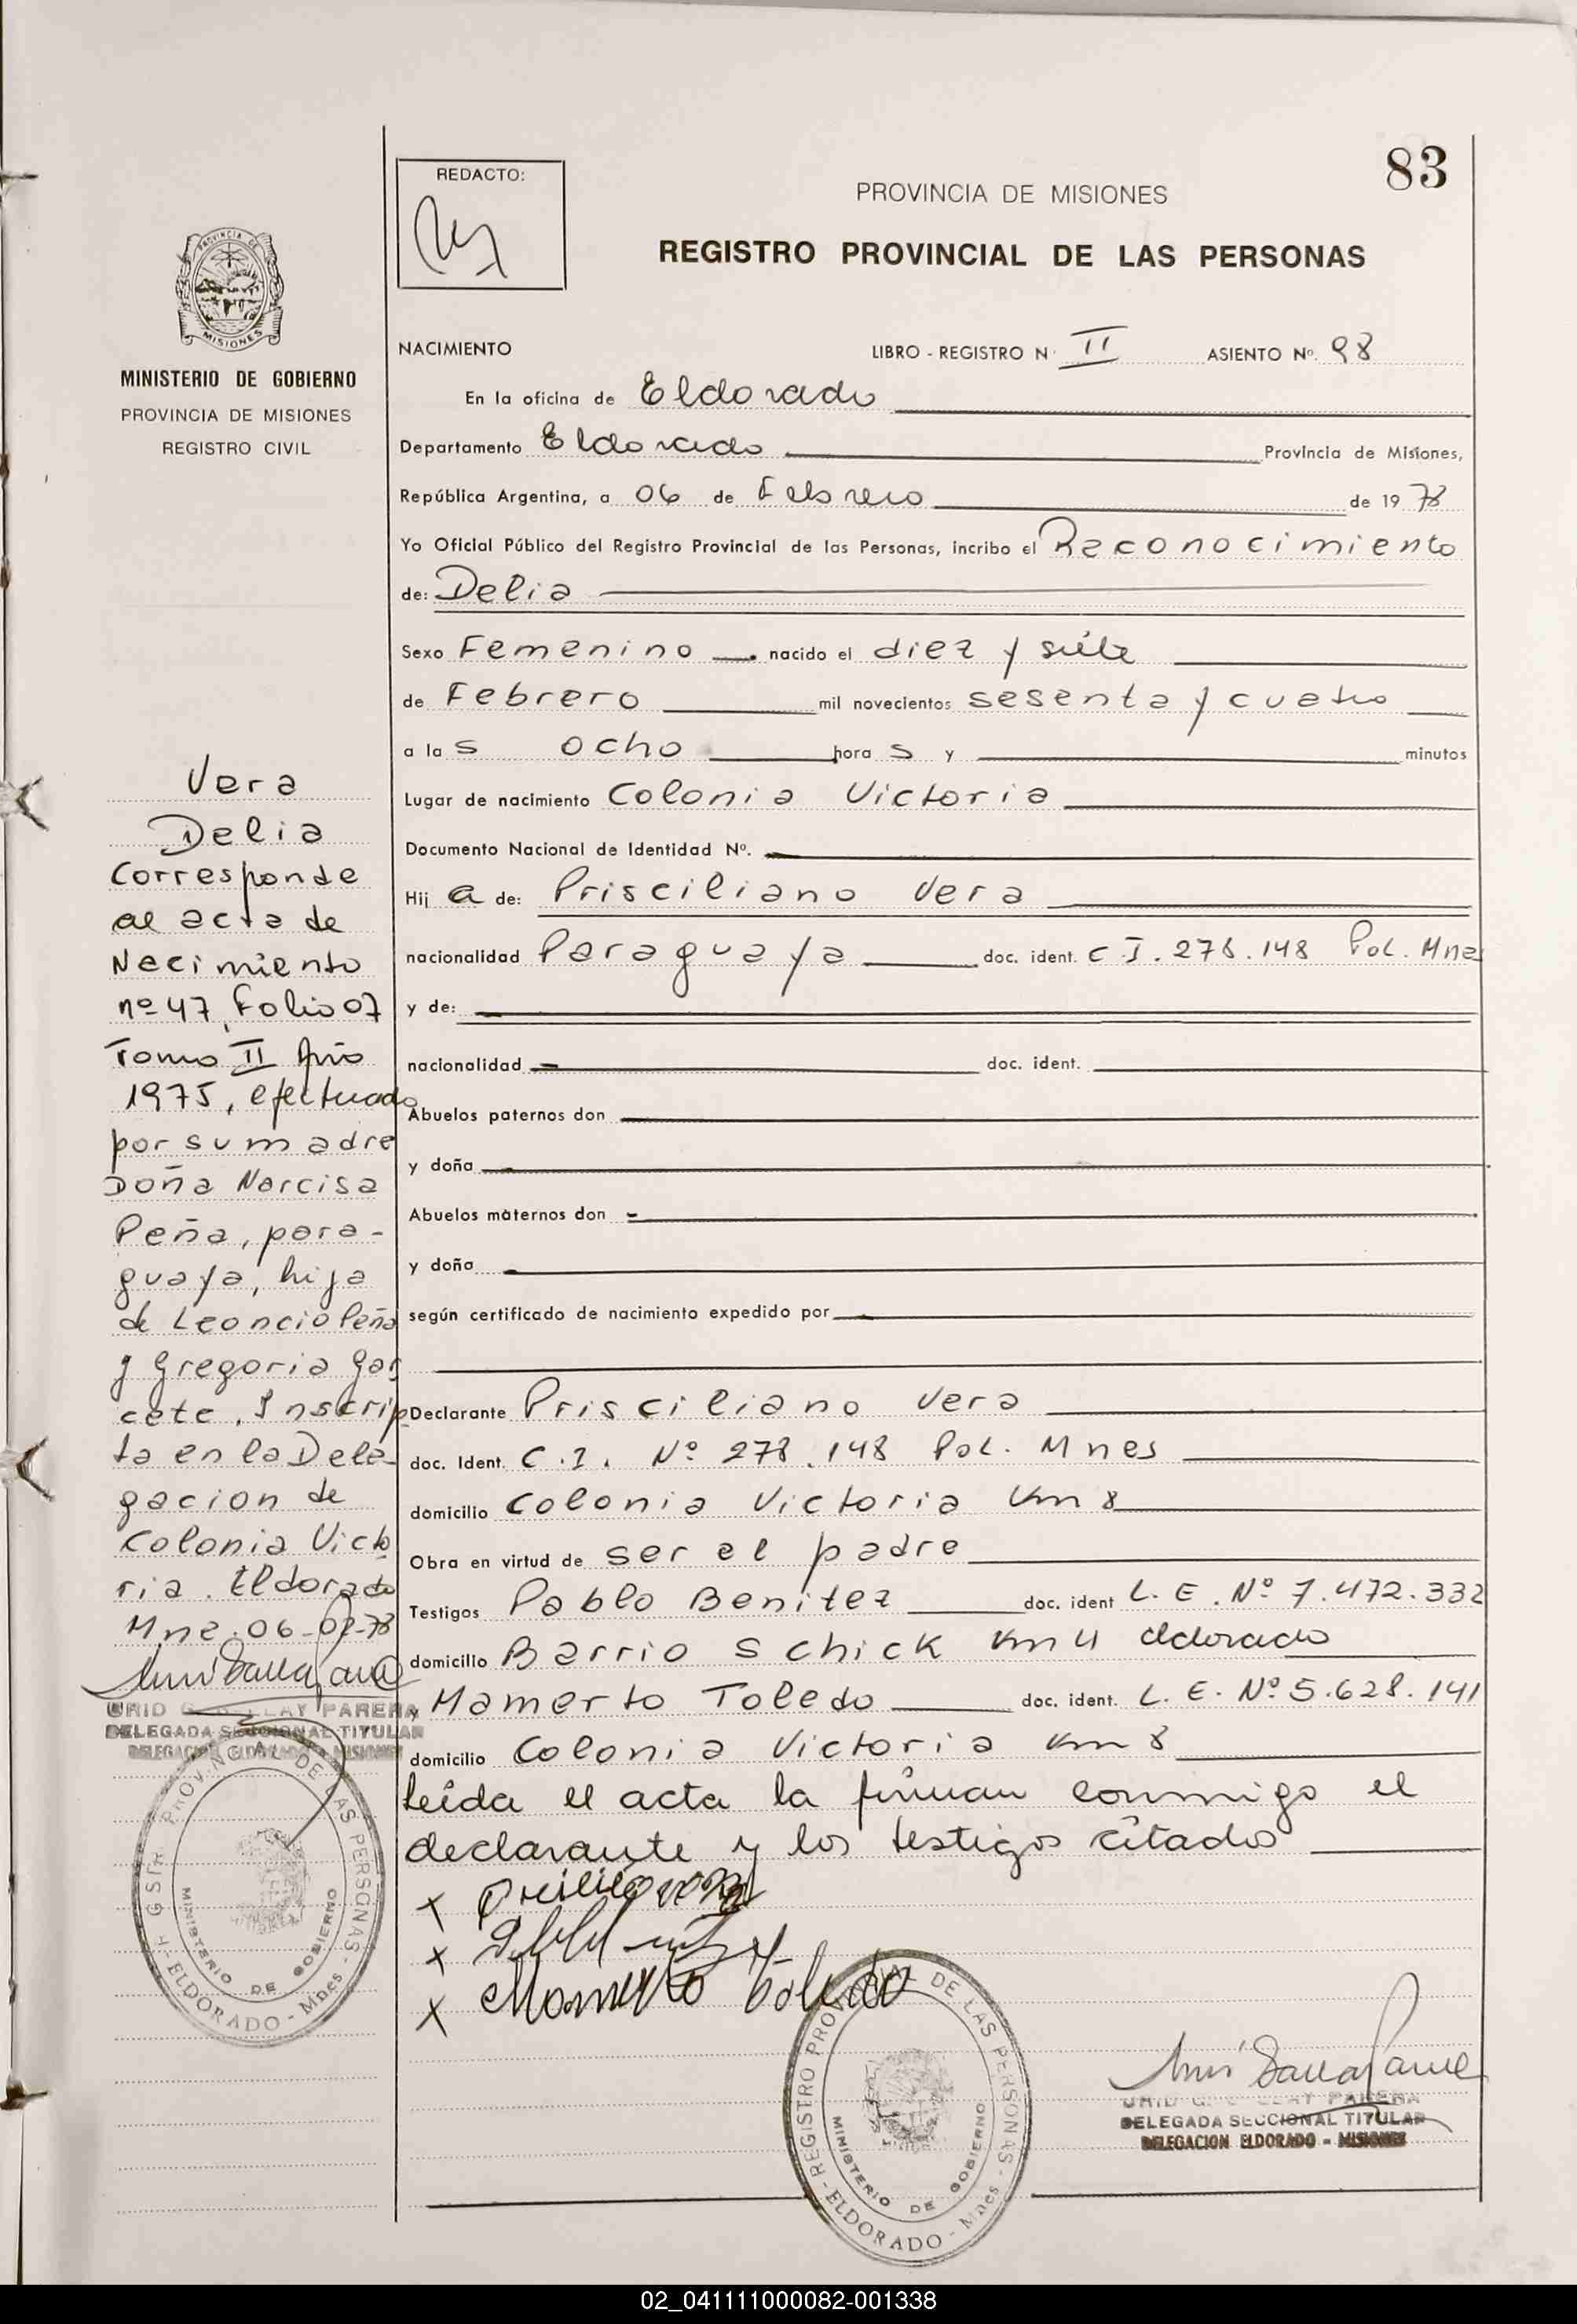 83
REDACTO:
PROVINCIA DE MISIONES
REGISTRO PROVINCIAL DE LAS PERSONAS
PROVINCIA DE
MISIONES
MINISTERIO DE GOBIERNO
PROVINCIA DE MISIONES
REGISTRO CIVIL
Vera
Delia
Corresponde
al acta de
Nacimiento
nº 47, Folio 07
Tomo II Año
1975, efectuado
por su madre
Doña Narcisa
Peña, para-
guaya, hija
de Leoncio Peña
y Gregoria Gar
cete, Inscrip
ta en la Dele-
gacion de
Colonia Victo
ria. Eldorado
Mne. 06-02-78
DELEGADA SECCIONAL TITULAR
DELEGACION ELDORADO - MISIONES
PROVINCIAL DE LAS PERSONAS - ELDORADO - Mnes -
MINISTERIO DE GOBIERNO
NACIMIENTO LIBRO - REGISTRO N· II ASIENTO Nº. 98
En la oficina de Eldorado
Departamento Eldorado Provincia de Misiones,
República Argentina, a 06 de Febrero de 1978
Yo Oficial Público del Registro Provincial de las Personas, incribo el Reconocimiento
de: Delia
Sexo Femenino nacido el diez y siete
de Febrero mil novecientos sesenta y cuatro
a la s ocho hora s y minutos
Lugar de nacimiento Colonia Victoria
Documento Nacional de Identidad Nº.
Hij a de: Prisciliano Vera
nacionalidad Paraguaya doc. ident. C.I. 278.148 Pol. Mnes
y de:
nacionalidad doc. ident.
Abuelos paternos don
y doña
Abuelos maternos don
y doña
según certificado de nacimiento expedido por
Declarante Prisciliano Vera
doc. Ident. C.I. Nº 278.148 Pol. Mnes
domicilio Colonia Victoria Km 8
Obra en virtud de ser el padre
Testigos Pablo Benitez doc. ident L.E. Nº 7.472.332
domicilio Barrio Schick Km 4 eldorado
y Mamerto Toledo doc. ident. L.E. Nº 5.628.141
domicilio Colonia Victoria Km 8
leída el acta la firman conmigo el
declarante y los testigos citados
x
x
x Mamerto Toledo
REGISTRO PROVINCIAL DE LAS PERSONAS - ELDORADO - Mnes -
MINISTERIO DE GOBIERNO
DELEGADA SECCIONAL TITULAR
DELEGACION ELDORADO - MISIONES
02_041111000082-001338